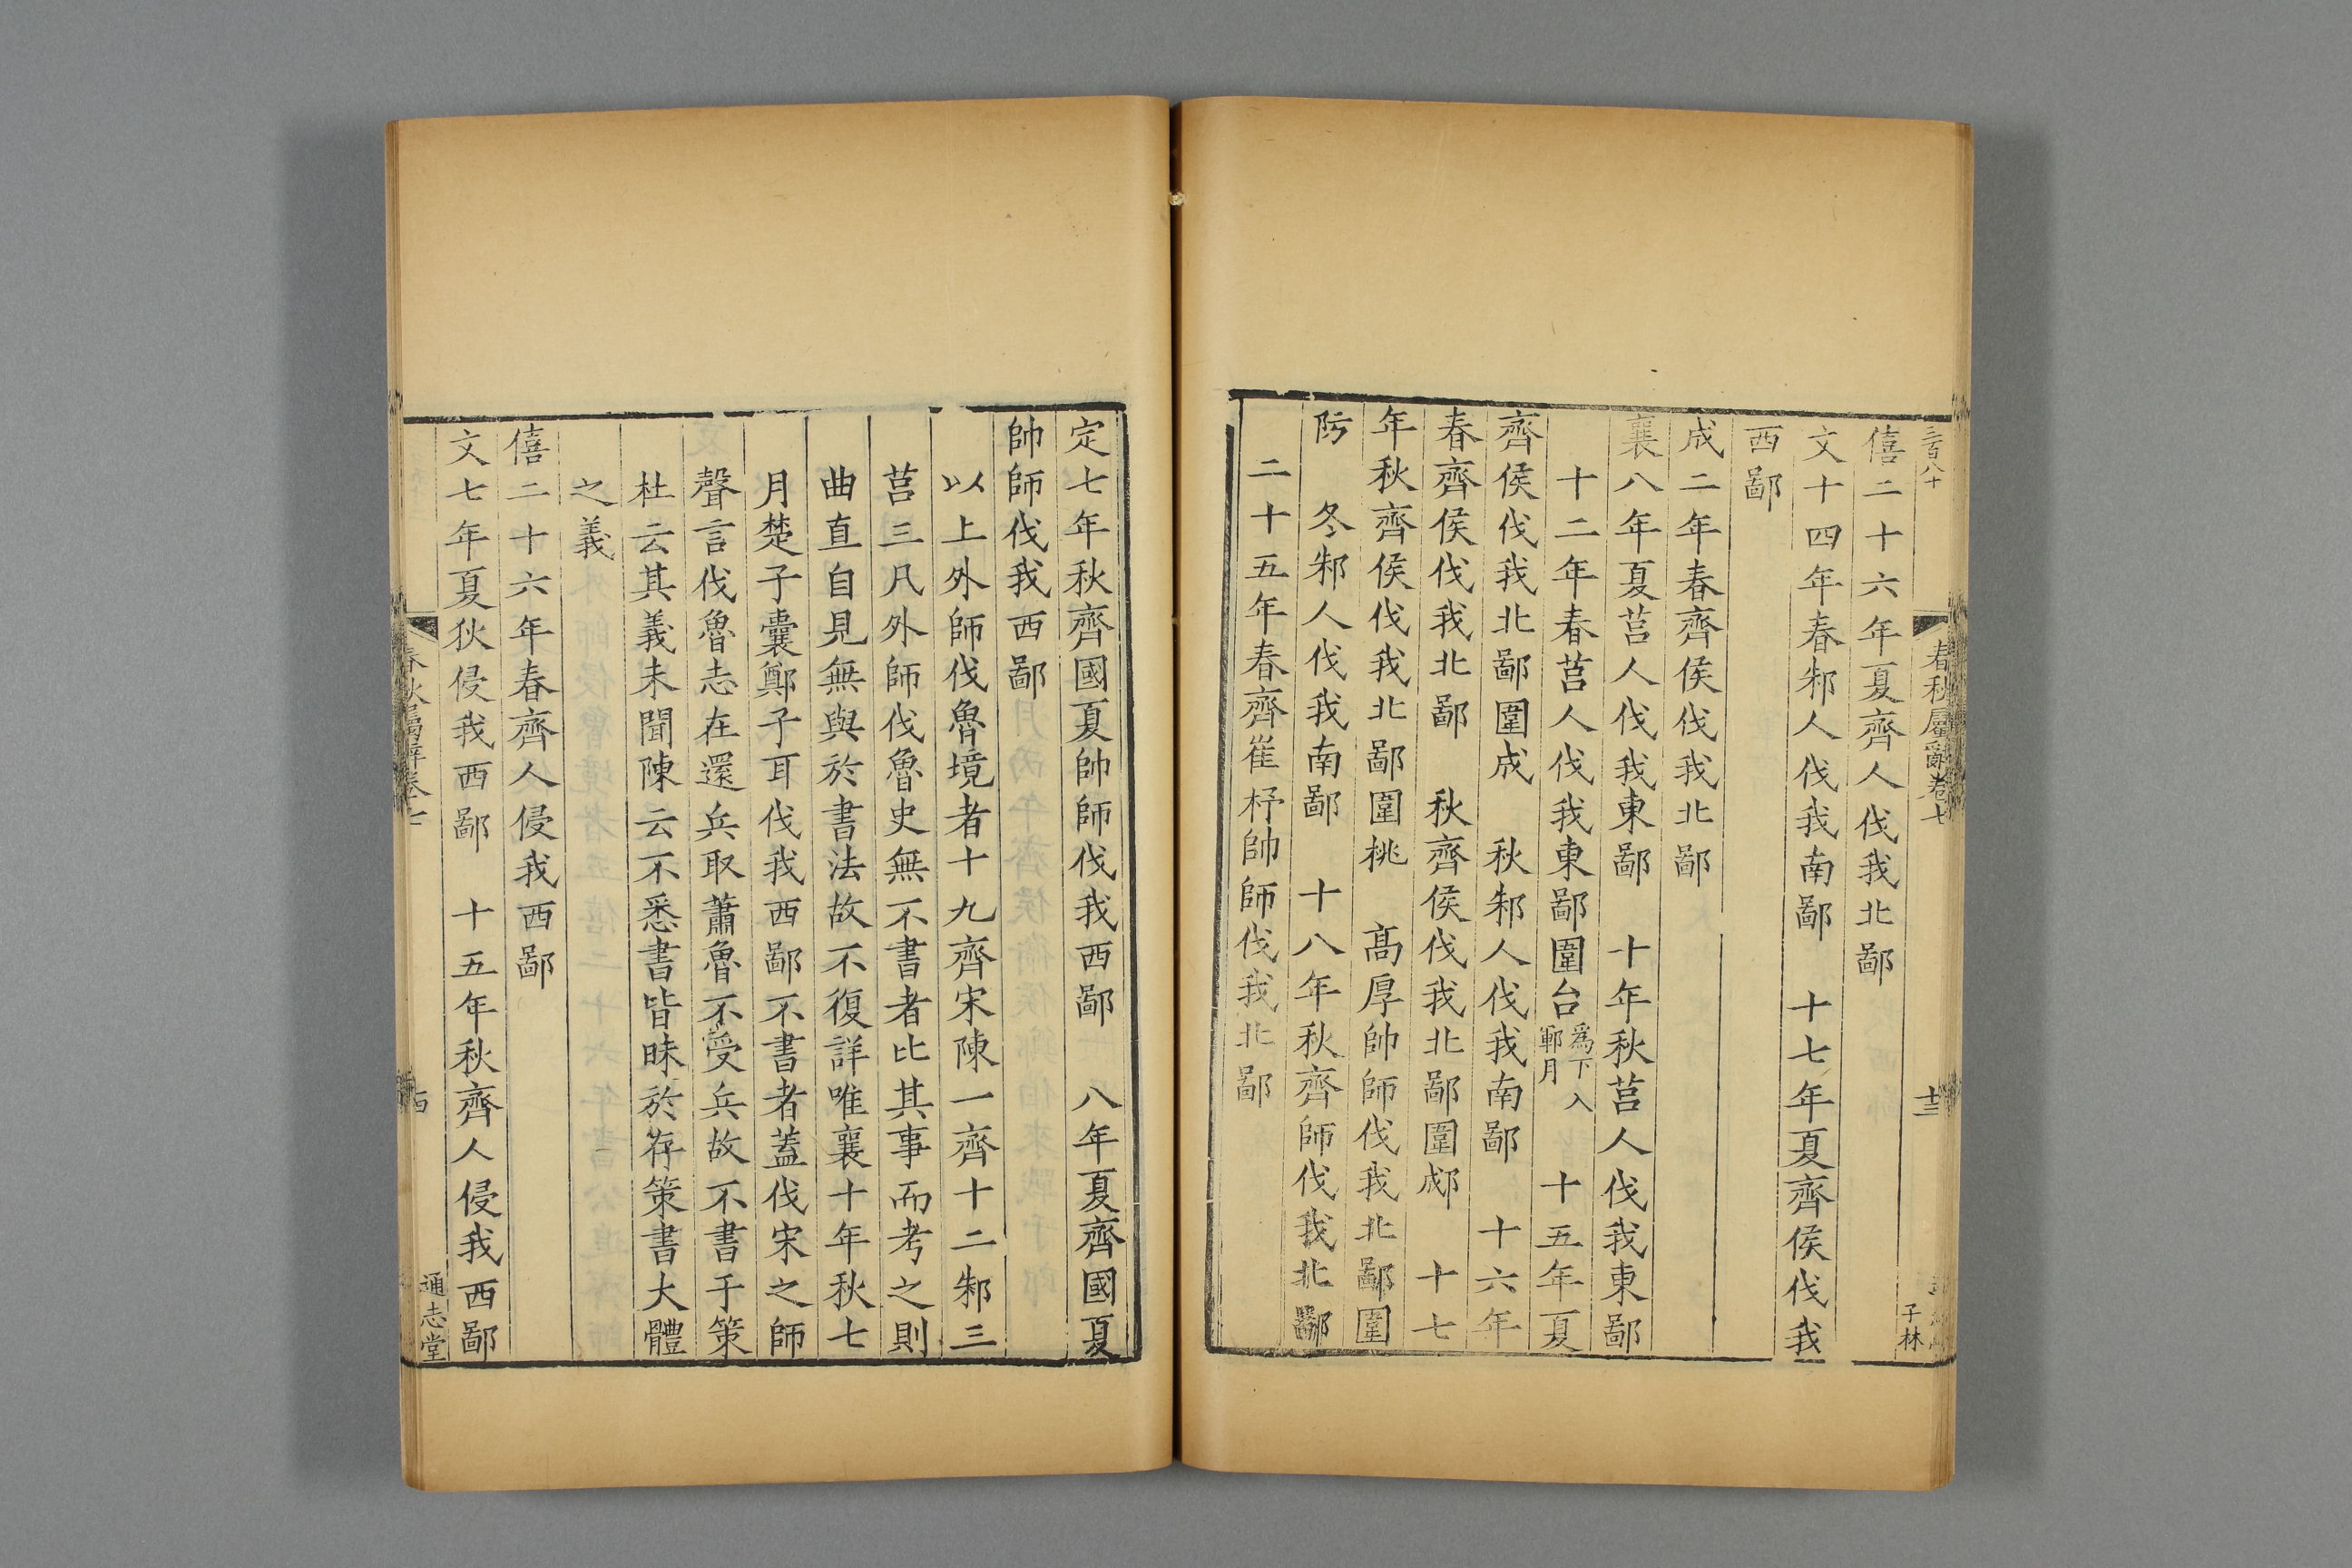 三百八十
春秋屬辭卷七
十三
子林
僖二十六年夏齊人伐我北鄙
文十四年春邾人伐我南鄙　十七年夏齊侯伐我
西鄙
成二年春齊侯伐我北鄙
襄八年夏莒人伐我東鄙　十年秋莒人伐我東鄙
十二年春莒人伐我東鄙圍台爲下入鄆月　十五年夏
齊侯伐我北鄙圍成　秋邾人伐我南鄙　十六年
春齊侯伐我北鄙　秋齊侯伐我北鄙圍郕　十七
年秋齊侯伐我北鄙圍桃　高厚帥師伐我北鄙圍
防　冬邾人伐我南鄙　十八年秋齊師伐我北鄙
二十五年春齊崔杼帥師伐我北鄙
定七年秋齊國夏帥師伐我西鄙　八年夏齊國夏
帥師伐我西鄙
以上外師伐魯境者十九齊宋陳一齊十二邾三
莒三凡外師伐魯史無不書者比其事而考之則
曲直自見無與於書法故不復詳唯襄十年秋七
月楚子囊鄭子耳伐我西鄙不書者蓋伐宋之師
聲言伐魯志在還兵取蕭魯不受兵故不書于策
杜云其義未聞陳云不悉書皆昧於存策書大體
之義
僖二十六年春齊人侵我西鄙
文七年夏狄侵我西鄙　十五年秋齊人侵我西鄙
春秋屬辭卷七
十四
通志堂